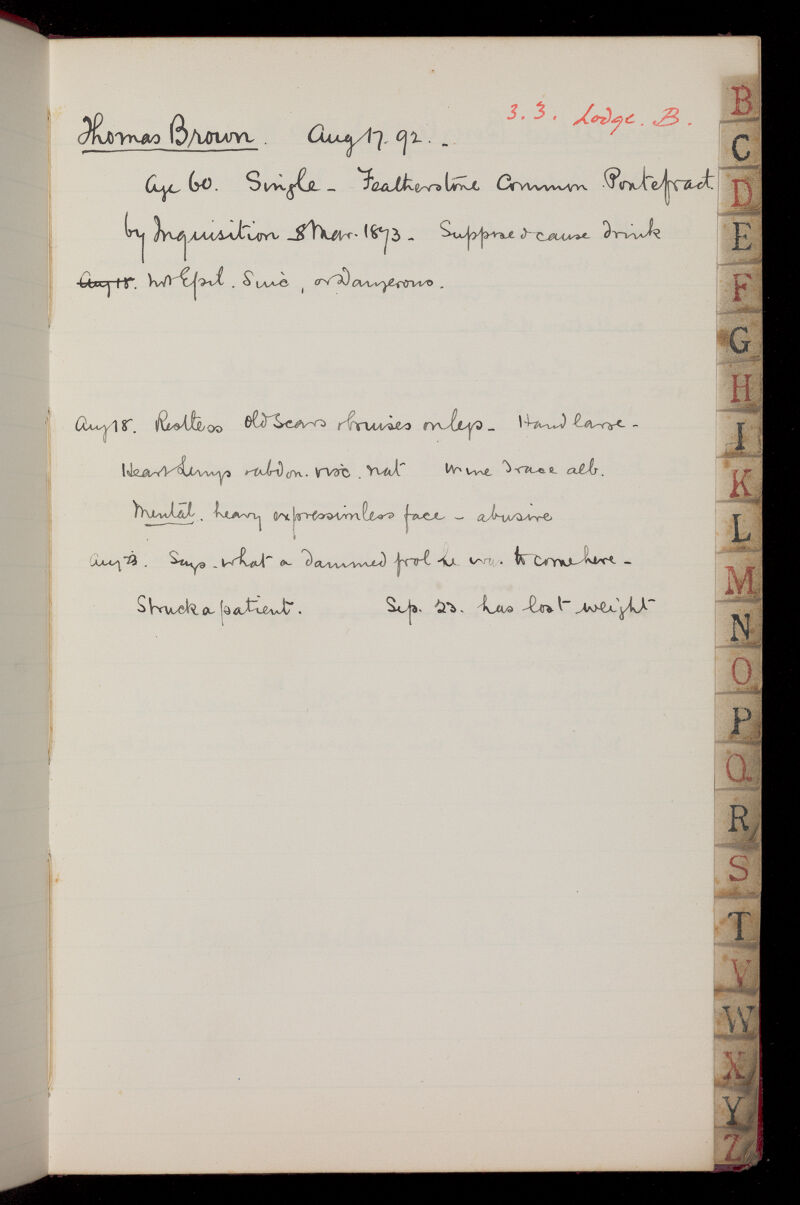 3. 3. Lodge. B.
Thomas Brown. Aug 17. 92. -
Age 60. Single - Featherstone Common Pontefract
by Inquisition 8 Mar. 1873 - Supposed cause drink
Aug 18. Not Epil. Suic, or Dangerous.
Aug 18. Restless Old Scars & bruises on legs - Hand large -
Heart Lungs & abdon. visc. nat Urine Trace alb.
Mental. heavy expressionless face - abusive
Aug 23. Says - what a dammed fool he was to come here -
Struck a patient. Sep. 23. has lost weight
B
C
D
E
F
G
H
I
K
L
M
N
O
P
Q
R
S
T
V
W
X
Y
Z